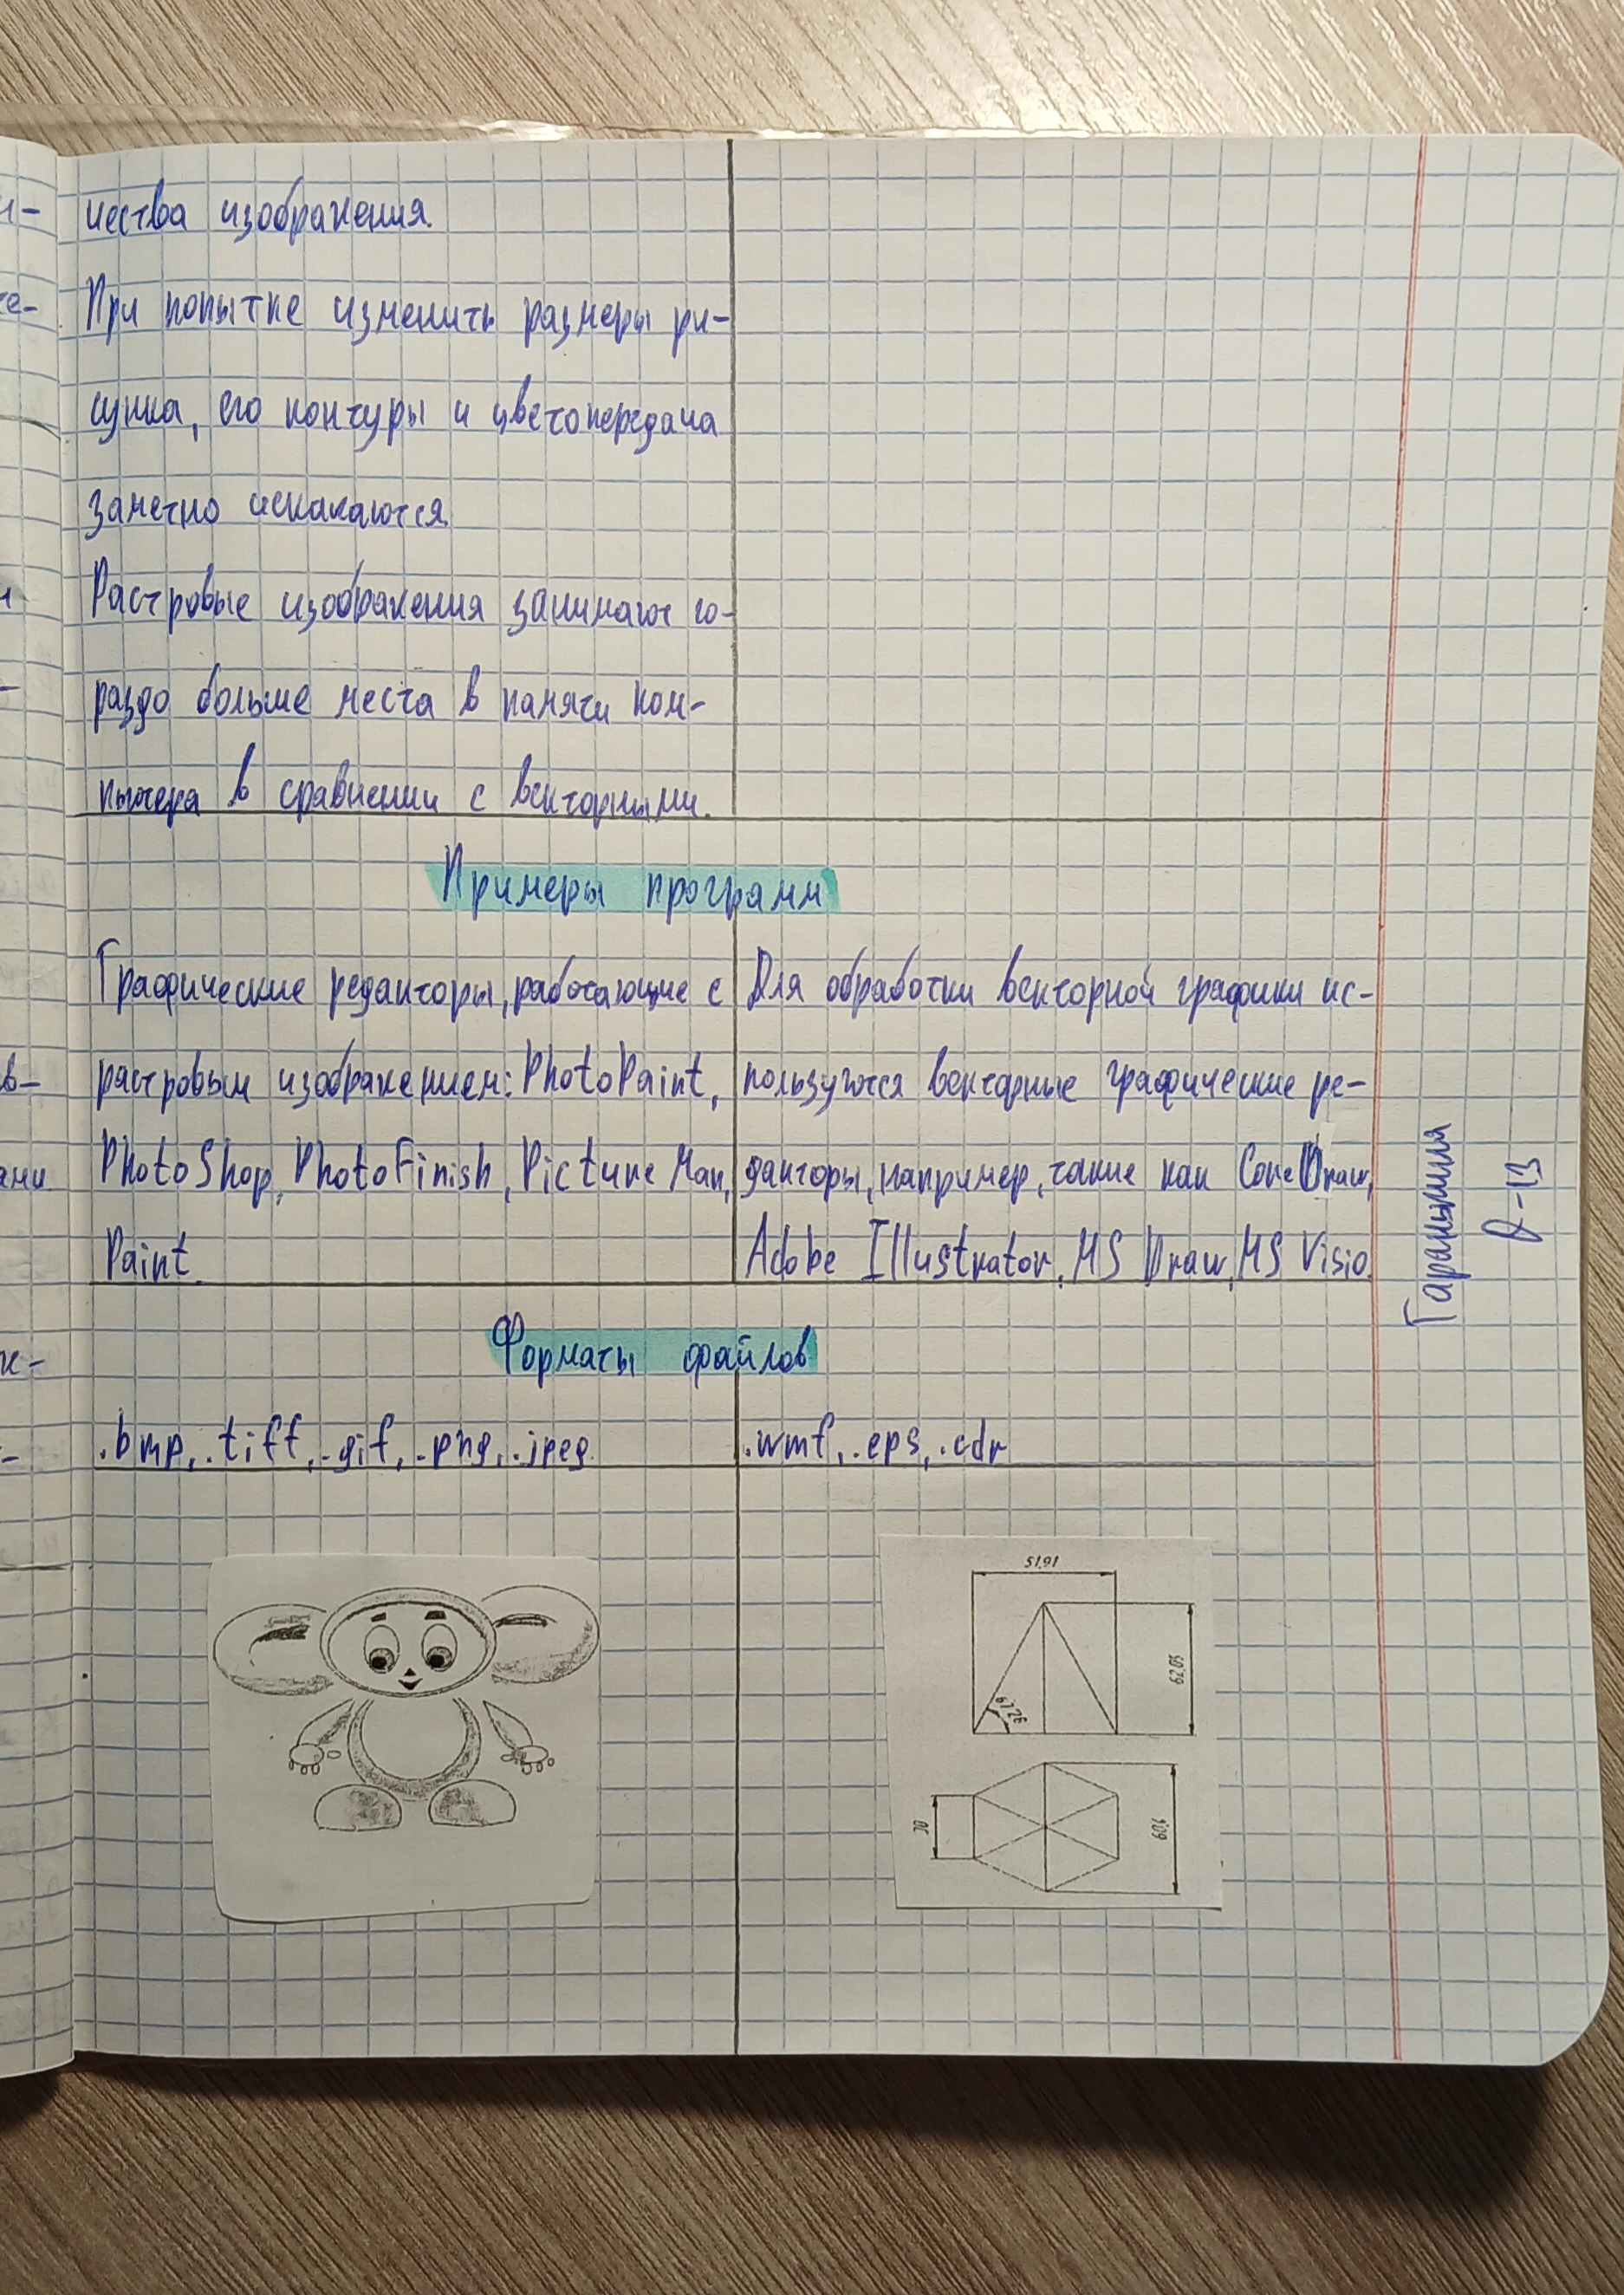 чества изображения.
При попытке изменить размеры ри-
сунка, его контуры и цветопередача
заметно искажаются.
Растровые изображения занимают го-
раздо больше места в памяти ком-
пьютера в сравнении с векторными.
Примеры программ
Графические редакторы, работающие с
растровым изображением: PhotoPaint,
PhotoShop, PhotoFinish, Picture Man,
Paint.
Для обработки векторной графики ис-
пользуются векторные графические ре-
дакторы, например, такие как CorelDraw,
Adobe Illustrator, MS Draw, MS Visio.
Форматы файлов
.bmp, .tiff, .gif, .png, .jpeg.
.wmf, .eps, .cdr
51,91
62,05
67,26
30
Д-13